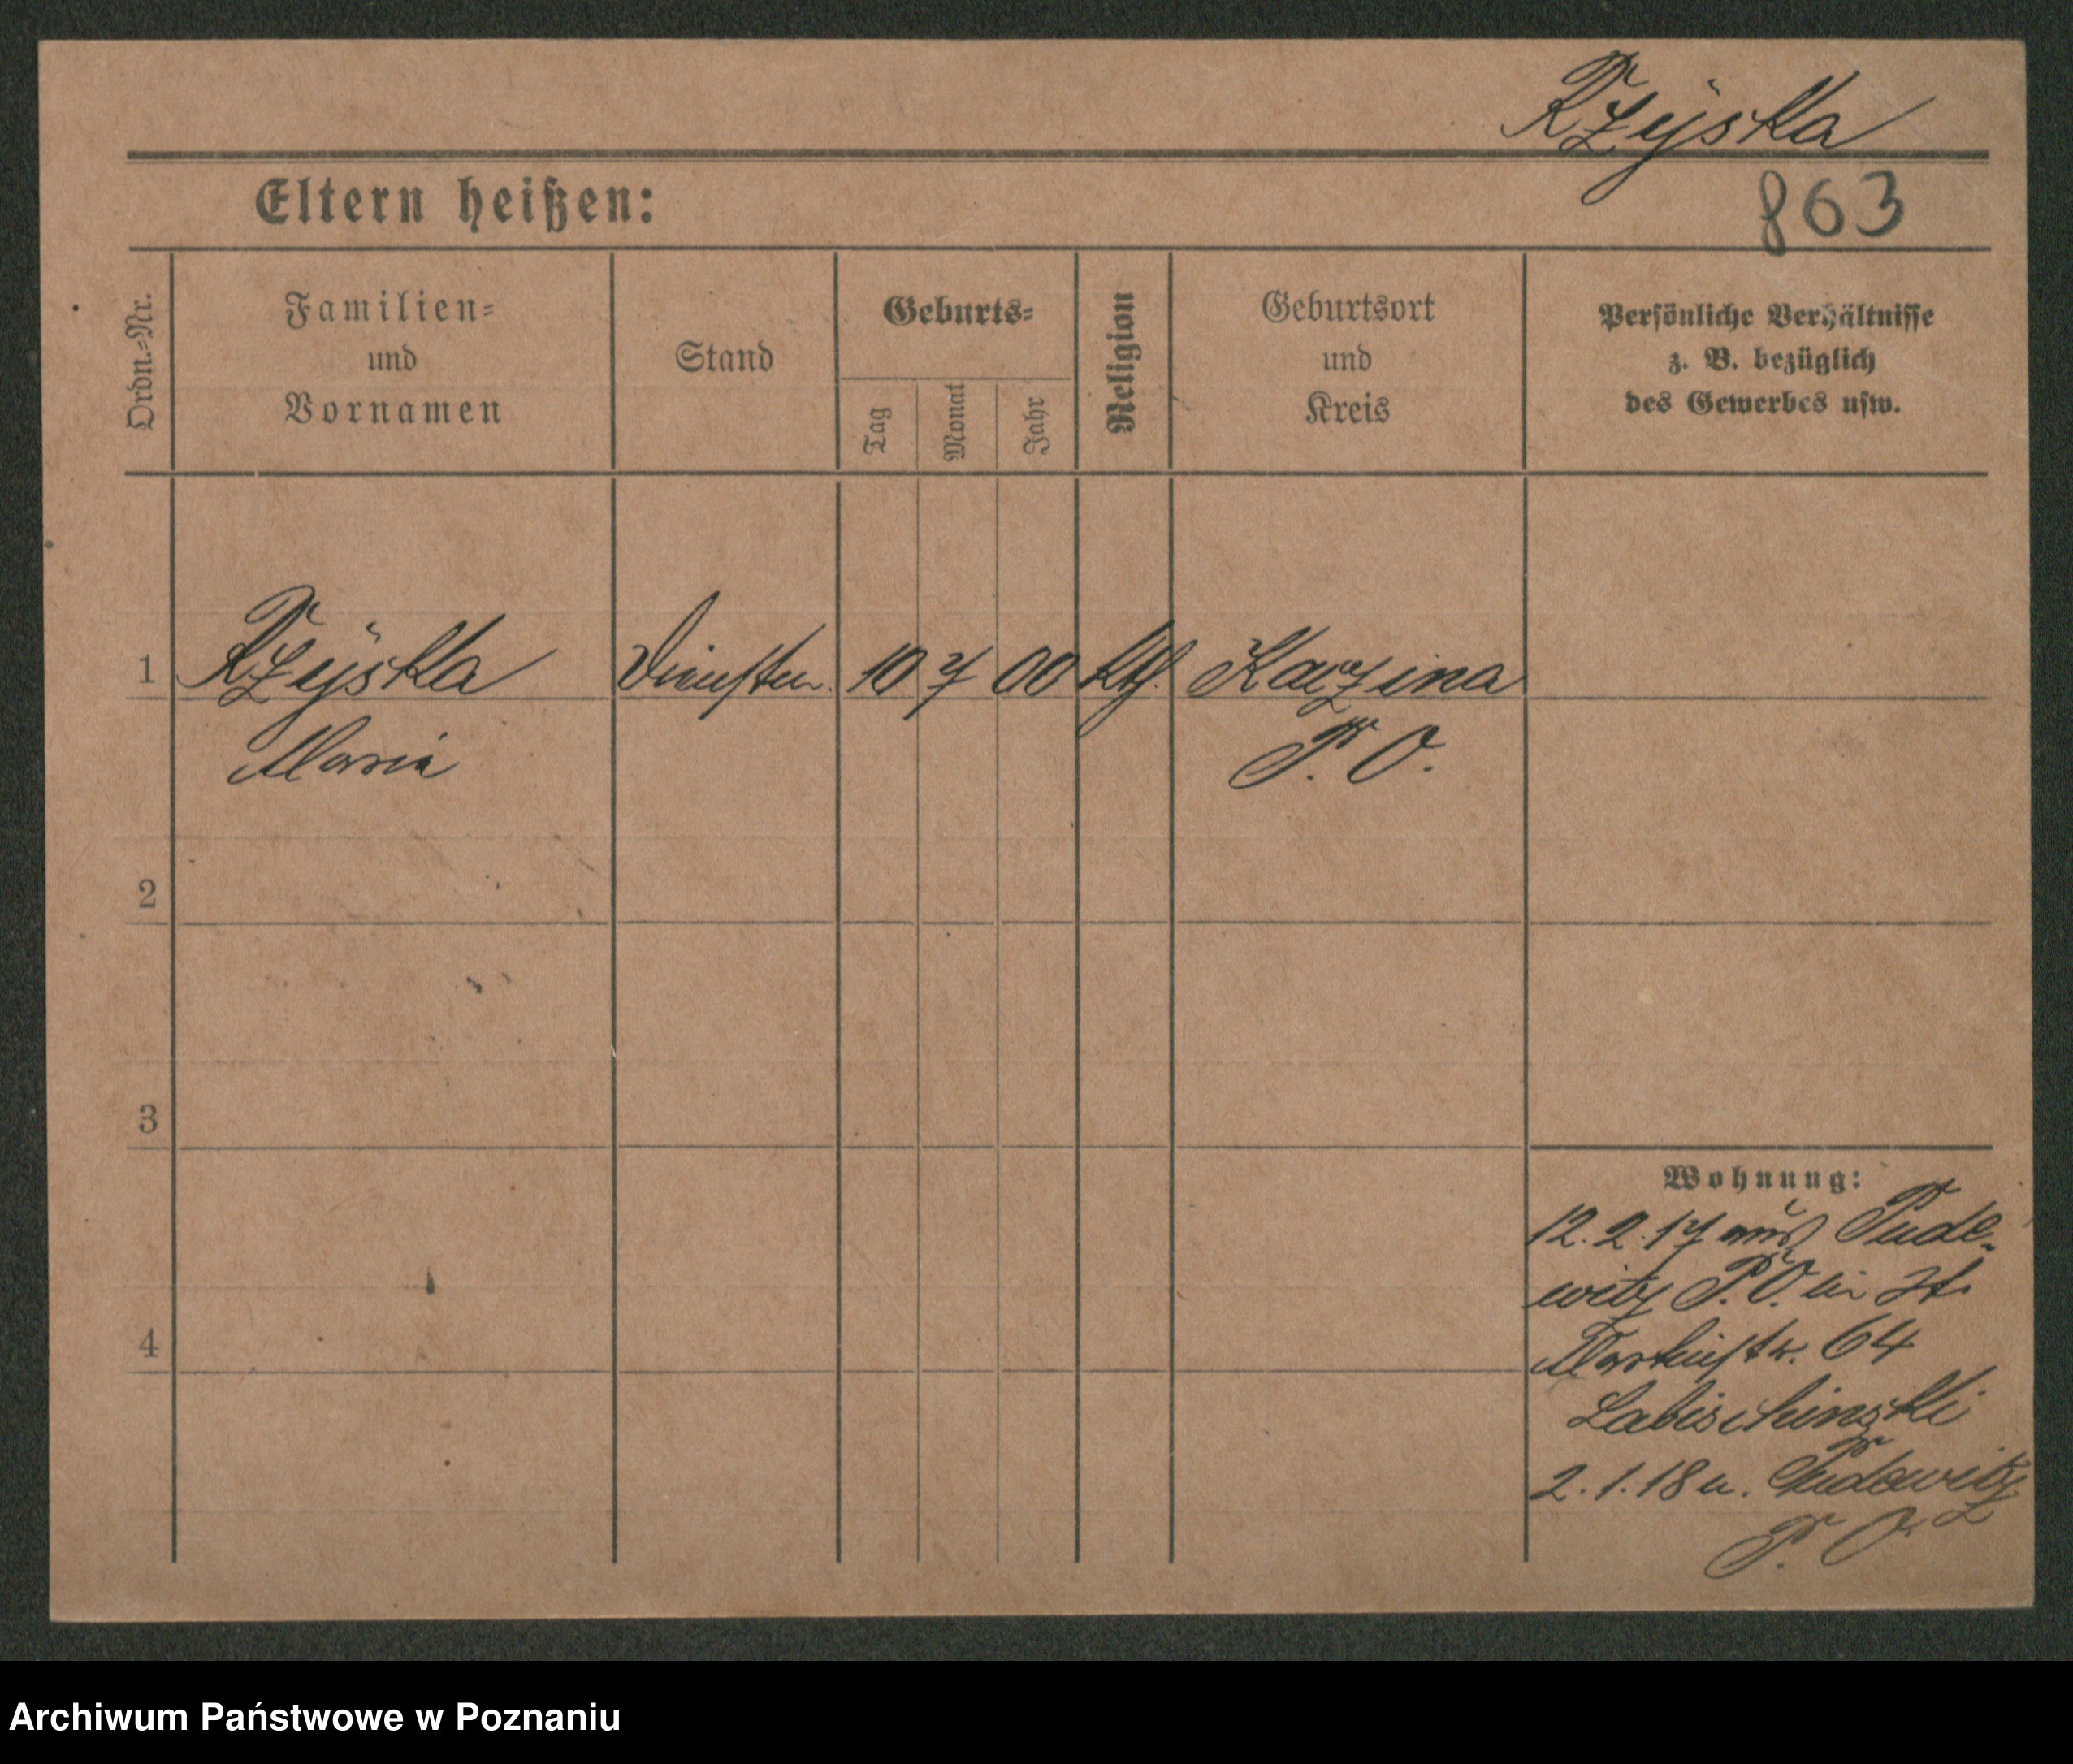 Rzyska
863
Eltern heißen:
Ordn.-Nr.
Familien-
und
Vornamen
Stand
Geburts-
Tag
Monat
Jahr
Religion
Geburtsort
und
Kreis
Persönliche Verhältnisse
z. B. bezüglich
des Gewerbes usw.
1 Rzyska 10 7 00 kth.
Maria
P. O.
2
3
4
Wohnung:
12.2.17 aus Pude-
witz P.O. in St.
Martinstr. 64
Labischinski
2.1.18 n. Pudewitz
P. O.
Archiwum Państwowe w Poznaniu